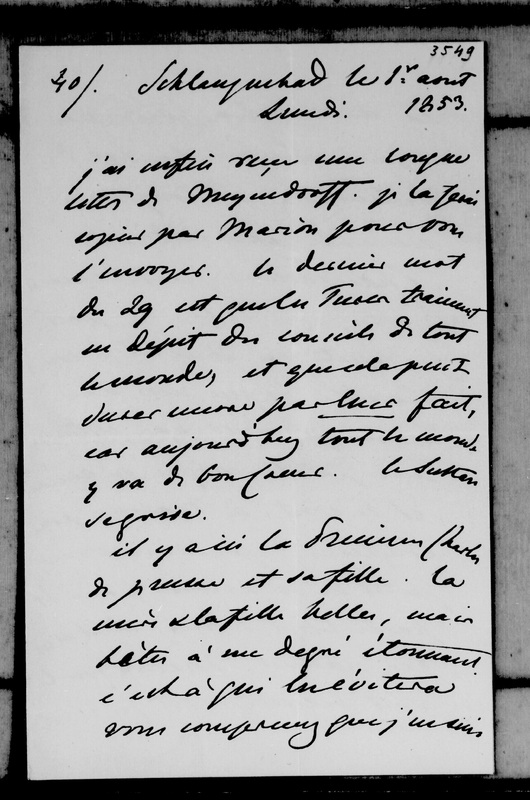 3549
40/. Schlangenbad le 1er aout
Lundi. 1853.
j'ai enfin reçu une longue
lettre de Meyendorff. je la ferai
copier par Marion pour vous
l'envoyer. le dernier mot
du 29 est que les Turcs trainent
en dépit des conseils de tout
le monde, et que cela peut
durer encore par leur fait,
car aujourd'huy tout le monde
y va de bon cœur. le Sultan
se grise.
il y a ici la Princesse Charles
de prusse et sa fille. la
mère & la fille belles, mais
bêtes à un degré étonnant.
c'est à qui les évitera
vous comprenez que j'en suis